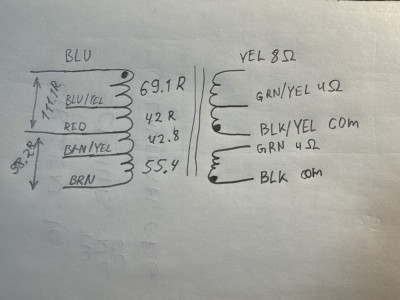 BLU
YEL 8Ω
69.1 R
111.1R
BLU/YEL
GRN/YEL 4Ω
42 R
RED
BLK/YEL COM
42.8
BRN/YEL
GRN 4Ω
98.2R
55.4
BRN
BLK COM